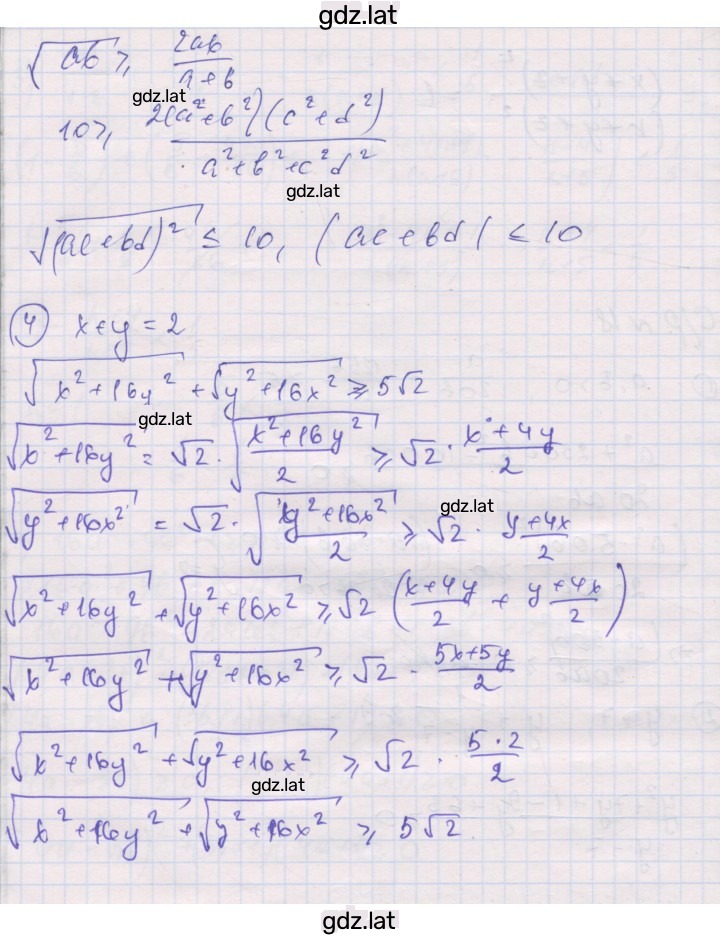 gdz.lat
√ab ≥ 2ab / a+b
gdz.lat
10 ≥ 2(a²+b²)(c²+d²) / a²+b²+c²d²
gdz.lat
√(ac+bd)² ≤ 10, |ac+bd| ≤ 10
4 x+y=2
√x²+16y² + √y²+16x² ≥ 5√2
gdz.lat
√x²+16y² = √2 · √x²+16y² / 2 ≥ √2 · x+4y / 2
gdz.lat
√y²+16x² = √2 · √y²+16x² / 2 ≥ √2 · y+4x / 2
√x²+16y² + √y²+16x² ≥ √2 (x+4y / 2 + y+4x / 2)
√x²+16y² + √y²+16x² ≥ √2 · 5x+5y / 2
√x²+16y² + √y²+16x² ≥ √2 · 5·2 / 2
gdz.lat
√x²+16y² + √y²+16x² ≥ 5√2
gdz.lat